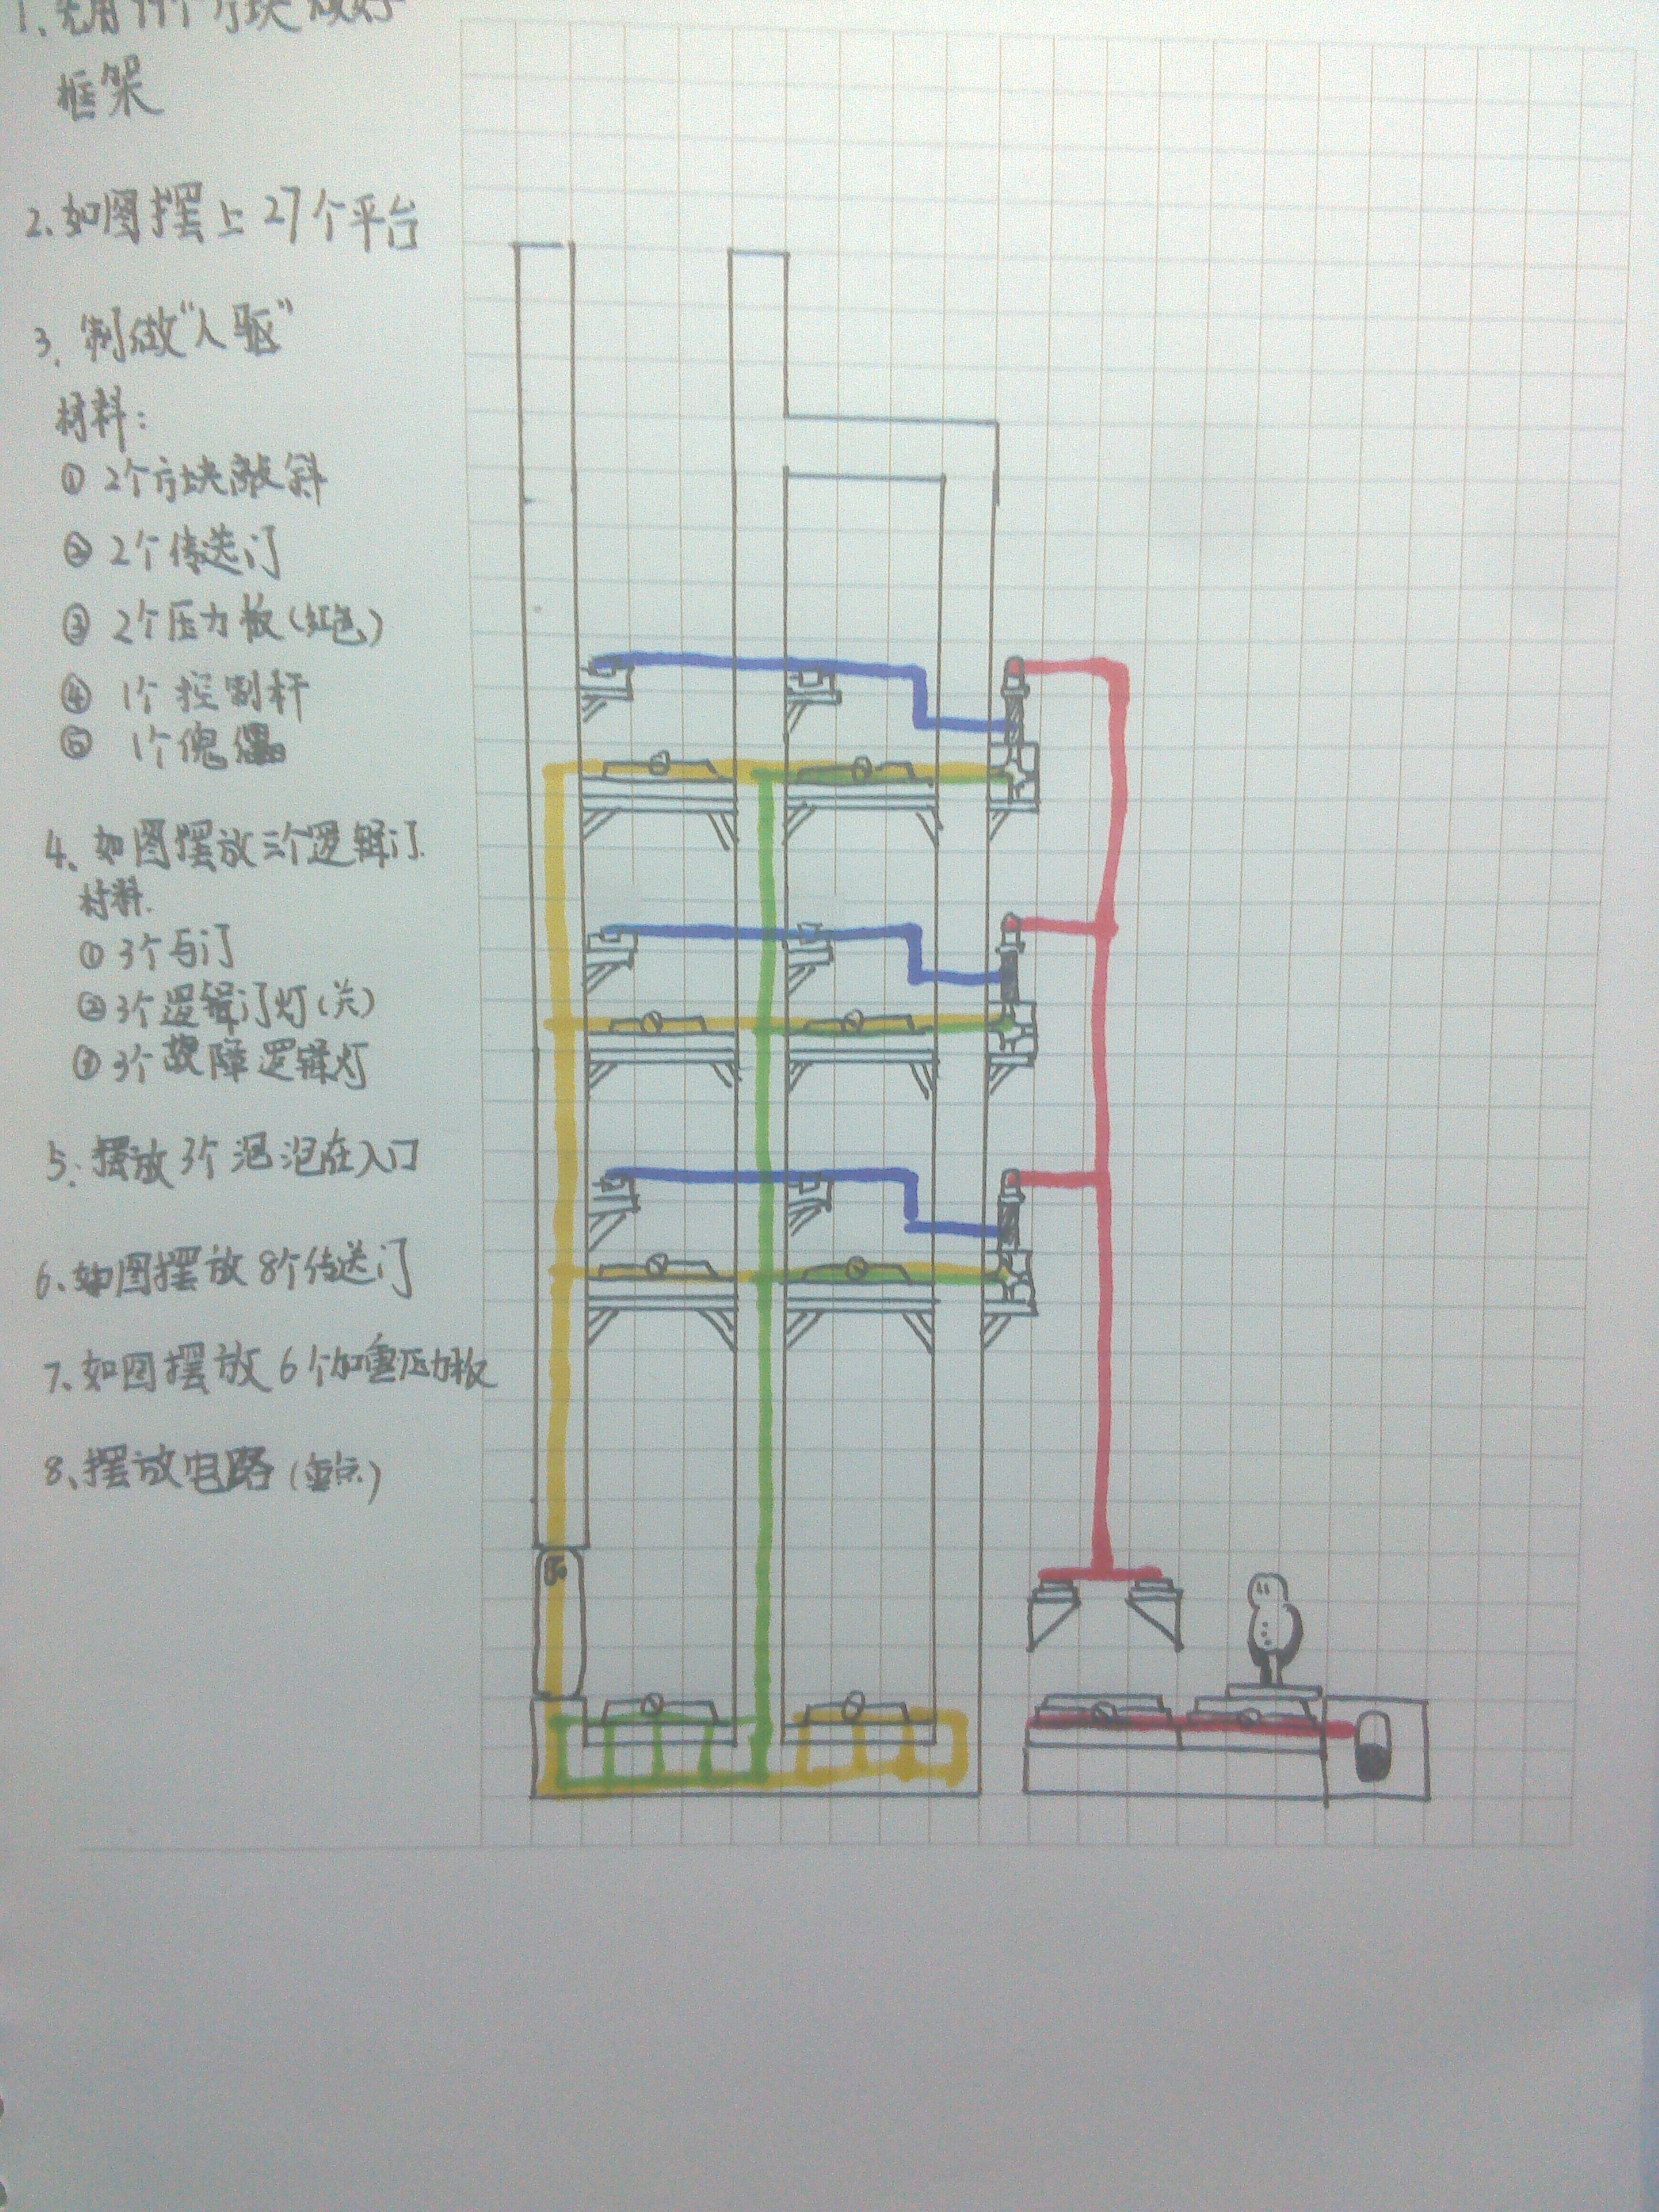 1、先用99个方块做好
框架
2.如图摆上27个平台
3.制做“人驱”
材料：
① 2个方块敲斜
② 2个传送门
③ 2个压力板(红色)
④ 1个控制杆
⑤ 1个傀儡
4、如图摆放三个逻辑门.
材料.
① 3个与门
② 3个逻辑门灯(关)
③ 3个故障逻辑灯
5.摆放3个泡泡在入口
6、如图摆放8个传送门
7、如图摆放6个加重压力板
8、摆放电路(重点)